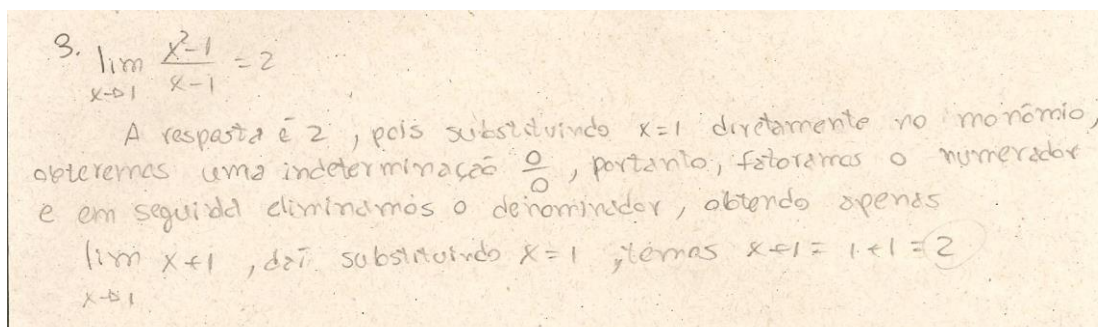 3. lim x²-1 / x-1 = 2
x→1
A resposta é 2, pois substituindo x=1 diretamente no monômio,
obteremos uma indeterminação 0/0, portanto, fatoramos o numerador
e em seguida eliminamos o denominador, obtendo apenas
lim x+1, daí substituindo x=1, temos x+1 = 1+1 = 2
x→1